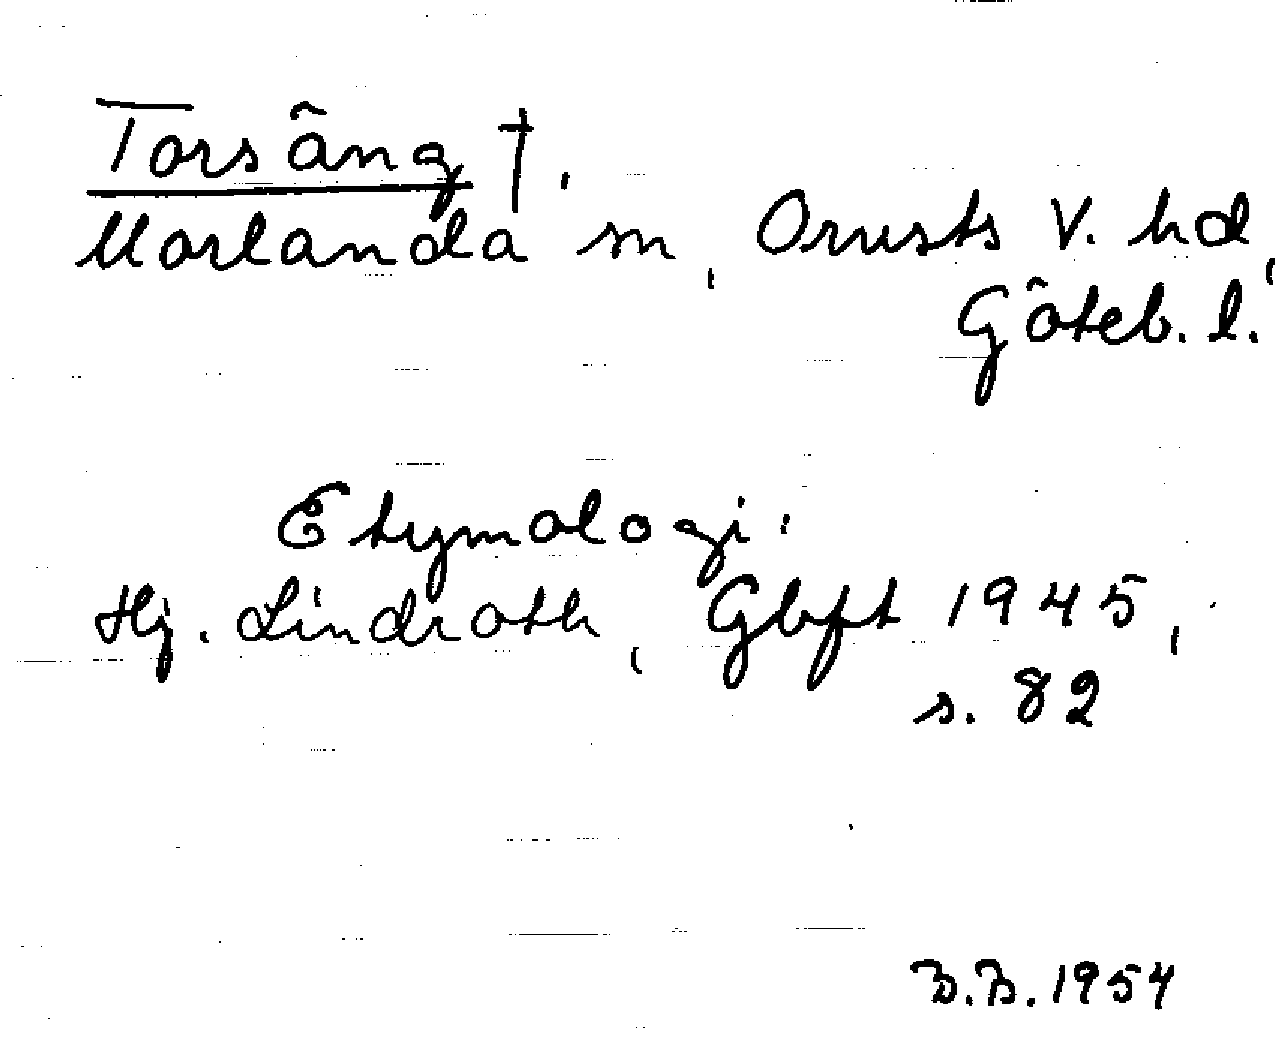 Torsäng †.
Morlanda sn, Orusts V. hd,
Göteb. l.
Etymologi.
Hj. Lindroth, Gbft 1945,
s. 82
B.B. 1954